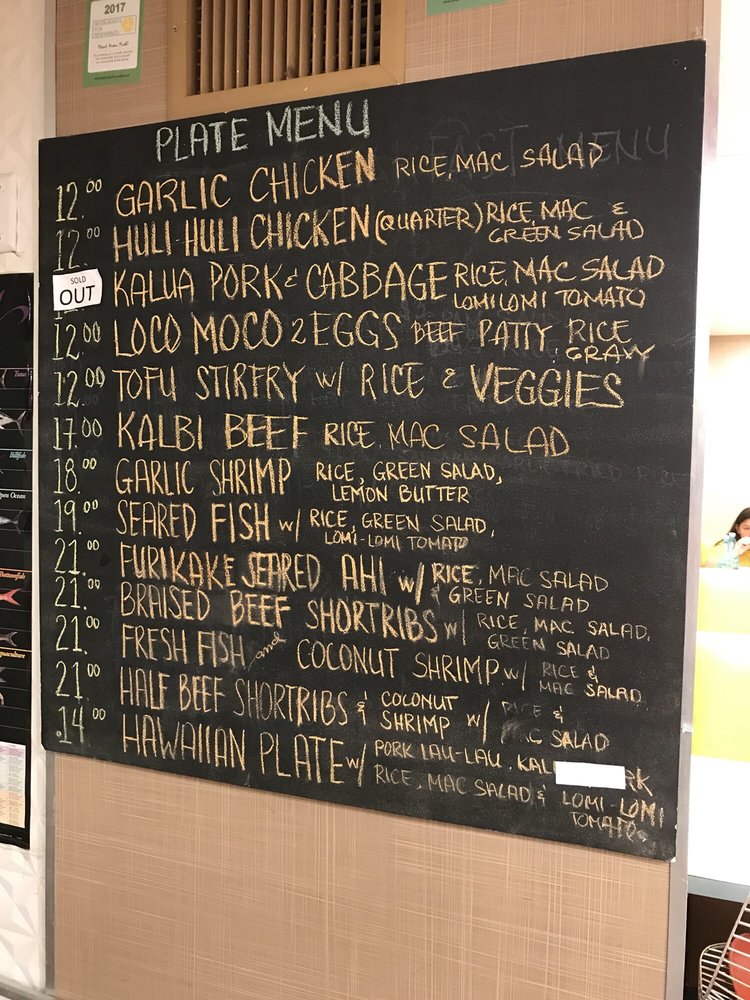 2017
RESTAURANTS
FOR
RENEWABLES
PLATE MENU
12.00 GARLIC CHICKEN RICE, MAC SALAD
12.00 HULI-HULI CHICKEN (QUARTER) RICE, MAC &
GREEN SALAD
SOLD
OUT
KALUA PORK & CABBAGE RICE, MAC SALAD
LOMILOMI TOMATO
12.00 LOCO MOCO 2 EGGS BEEF PATTY, RICE
GRAVY
12.00 TOFU STIRFRY W/ RICE & VEGGIES
17.00 KALBI BEEF RICE, MAC SALAD
18.00 GARLIC SHRIMP RICE, GREEN SALAD,
LEMON BUTTER
19.00 SEARED FISH W/ RICE, GREEN SALAD,
LOMI-LOMI TOMATO
21.00 FURIKAKE SEARED AHI W/ RICE, MAC SALAD
& GREEN SALAD
21.00 BRAISED BEEF SHORTRIBS W/ RICE, MAC SALAD,
GREEN SALAD
21.00 FRESH FISH and COCONUT SHRIMP W/ RICE &
MAC SALAD
21.00 HALF BEEF SHORTRIBS & COCONUT
SHRIMP W/ RICE &
MAC SALAD
.14.00 HAWAIIAN PLATE W/ PORK LAU-LAU, KAL RK
RICE, MAC SALAD & LOMI-LOMI
TOMATO
Tuna
Billfish
Open Ocean
Bottomfish